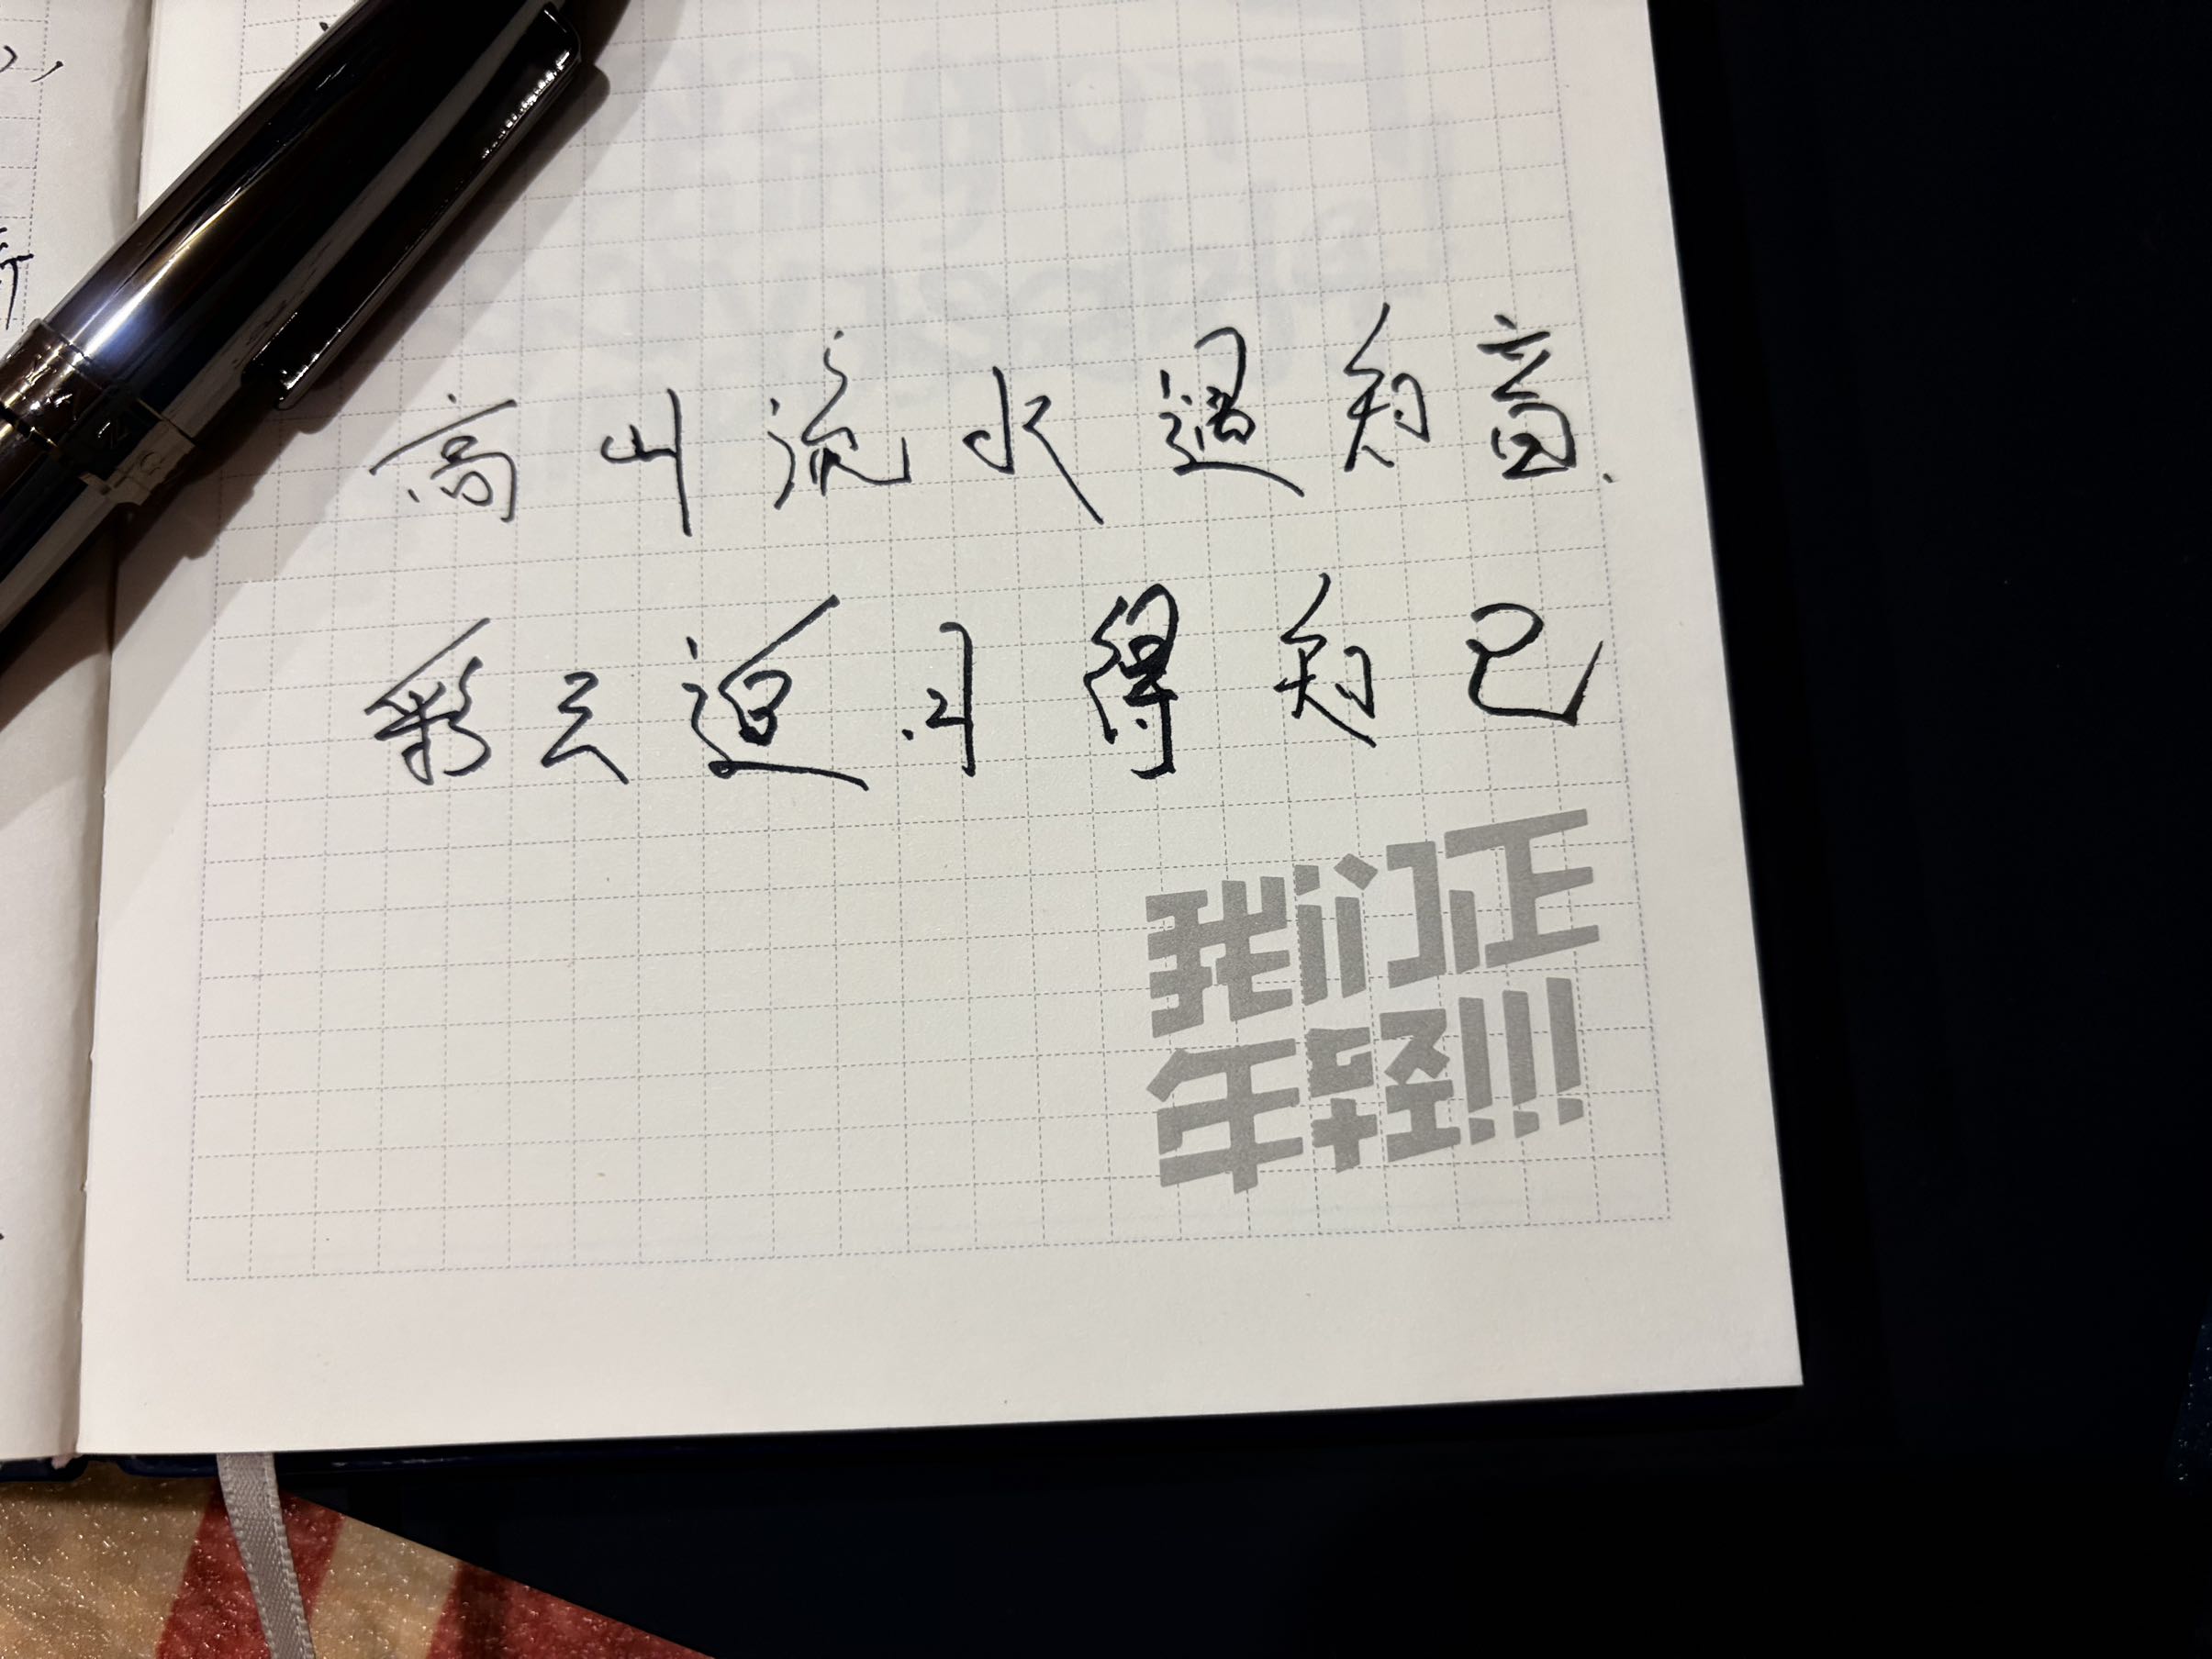 高山流水遇知音.
彩云追月得知己
我们正
年轻!!!